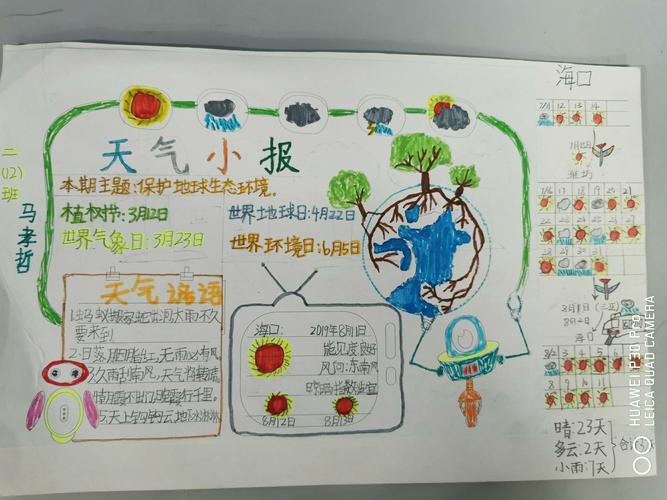 海口
天气小报
二(12)班
马孝哲
本期主题:保护地球生态环境。
植树节:3月12日
世界地球日:4月22日
世界气象日:3月23日
世界环境日:6月5日
天气谚语
1.蚂蚁搬家蛇出洞大雨不久
要来到
2.日落胭脂红,无雨必有风
3.久雨刮南风,天气将转晴
行千里。
5.天上钩钩云,地下
海口:
2019年8月1日
能见度良好
风向:东南风
8月12日
8月13日
7/11 12 13 14
7月15日
潍坊
7/16 17 18 19 20 21
8月1日(三亚)
8月2日
海口
8/2
8 9 10 11
晴:23天
多云:2天
小雨:7天
HUAWEI P30 Pro
LEICA QUAD CAMERA